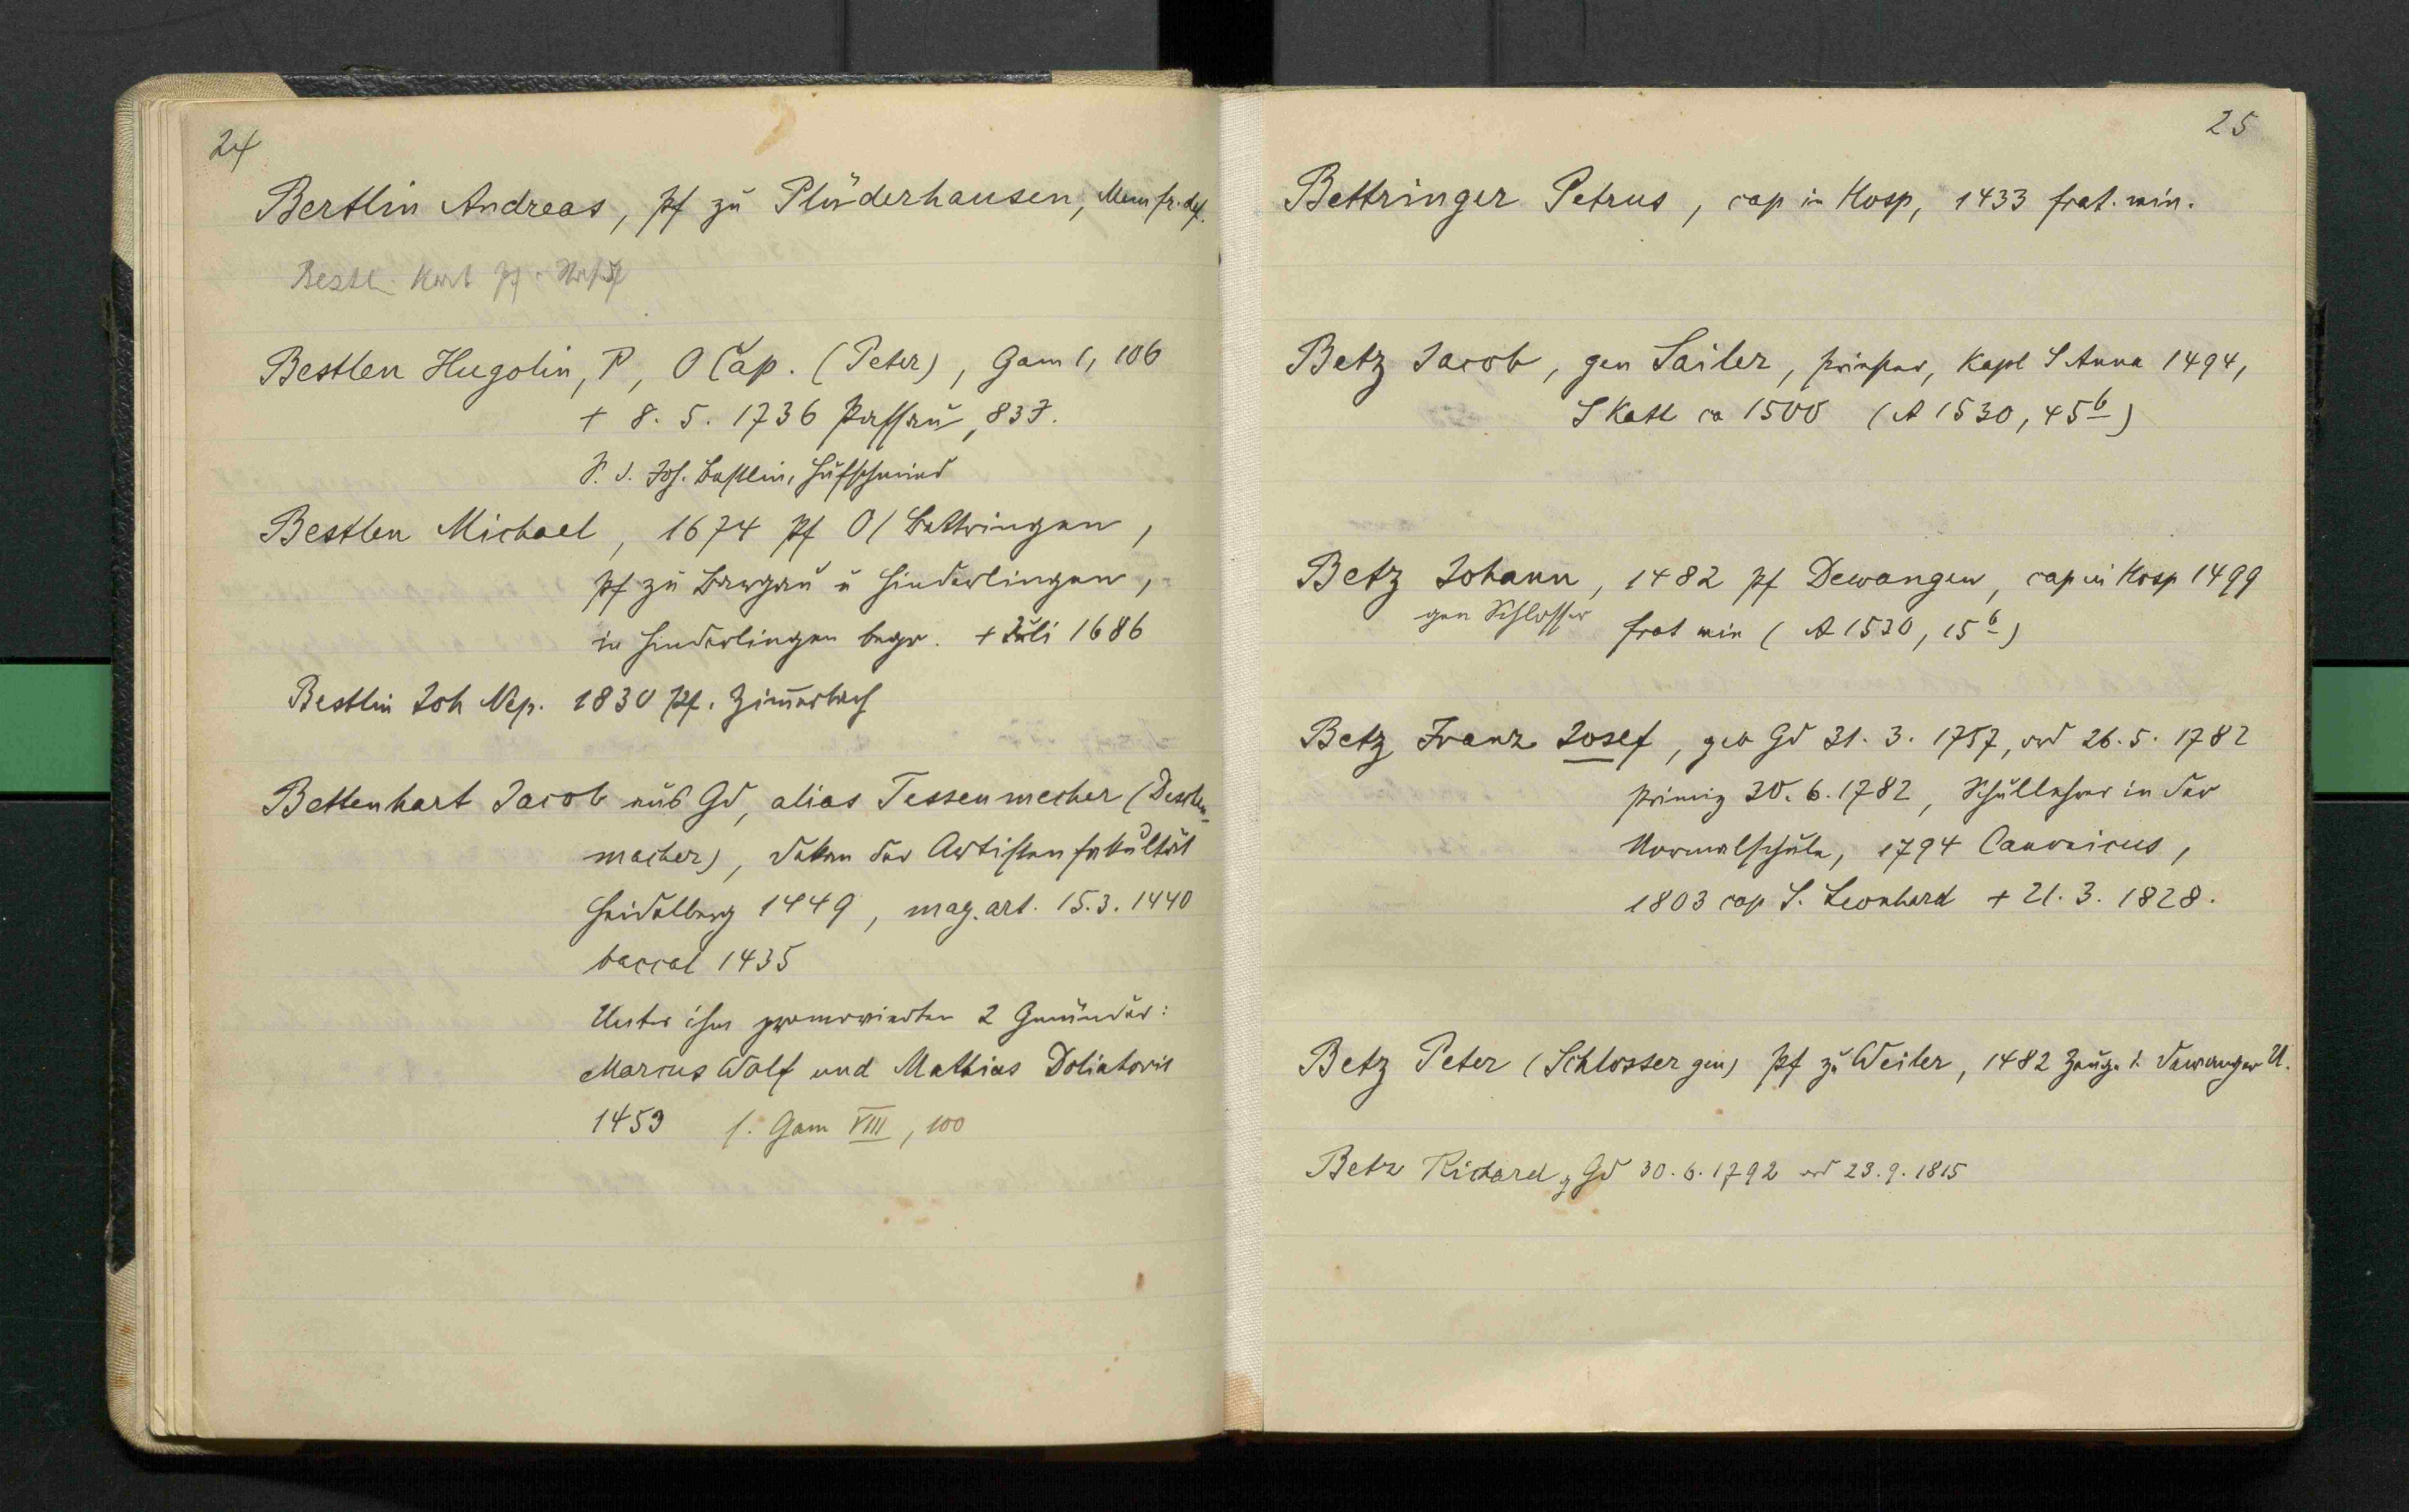 24
Bertlin Andreas, Pf zu Plüderhausen, Mem fr. def.
Bestl. Karl Pf.
Bestlen Hugolin, P, O Cap. (Peter), Gam 1, 106
+ 8. 5. 1736 Passau, 83 J.
S. d. Jos. Bestlin, Hufschmied
Bestlen Michael, 1674 Pf O/Bettringen,
Pf zu Bargau u Hinderlingen,
in Hinderlingen begr. + Juli 1686
Bestlin Joh Nep. 1830 Pf. Zimerbach
Bettenhart Jacob aus Gd, alias Tessenmecher (Deschen-
macher), Dekan der Artistenfakultät
Heidelberg 1449, mag. art. 15. 3. 1440
baccal 1435
Unter ihm promovierten 2 Gmünder:
Marcus Wolf und Mathias Doliatoris
1459 s. Gam VIII, 100
25
Bettringer Petrus, cap in Hosp, 1433 frat. min.
Betz Jacob, gen Sailer, Priester, Kapl S Anna 1494,
S Kath ca 1500 (A 1530, 45b)
Betz Johann, 1482 Pf Dewangen, cap in Hosp 1499
gen Schlosser frat min (A 1530, 15b)
Betz Franz Josef, geb Gd 31. 3. 1757, ord 26. 5. 1782
Primiz 30. 6. 1782, Schullehrer in der
Normalschule, 1794 Canonicus,
1803 cap S. Leonhard + 21. 3. 1828.
Betz Peter (Schlosser gen) Pf zu Weiler, 1482 Zeuge i. Dewanger U.
Betz Richard, g Gd 30. 6. 1792 ord 23. 9. 1815